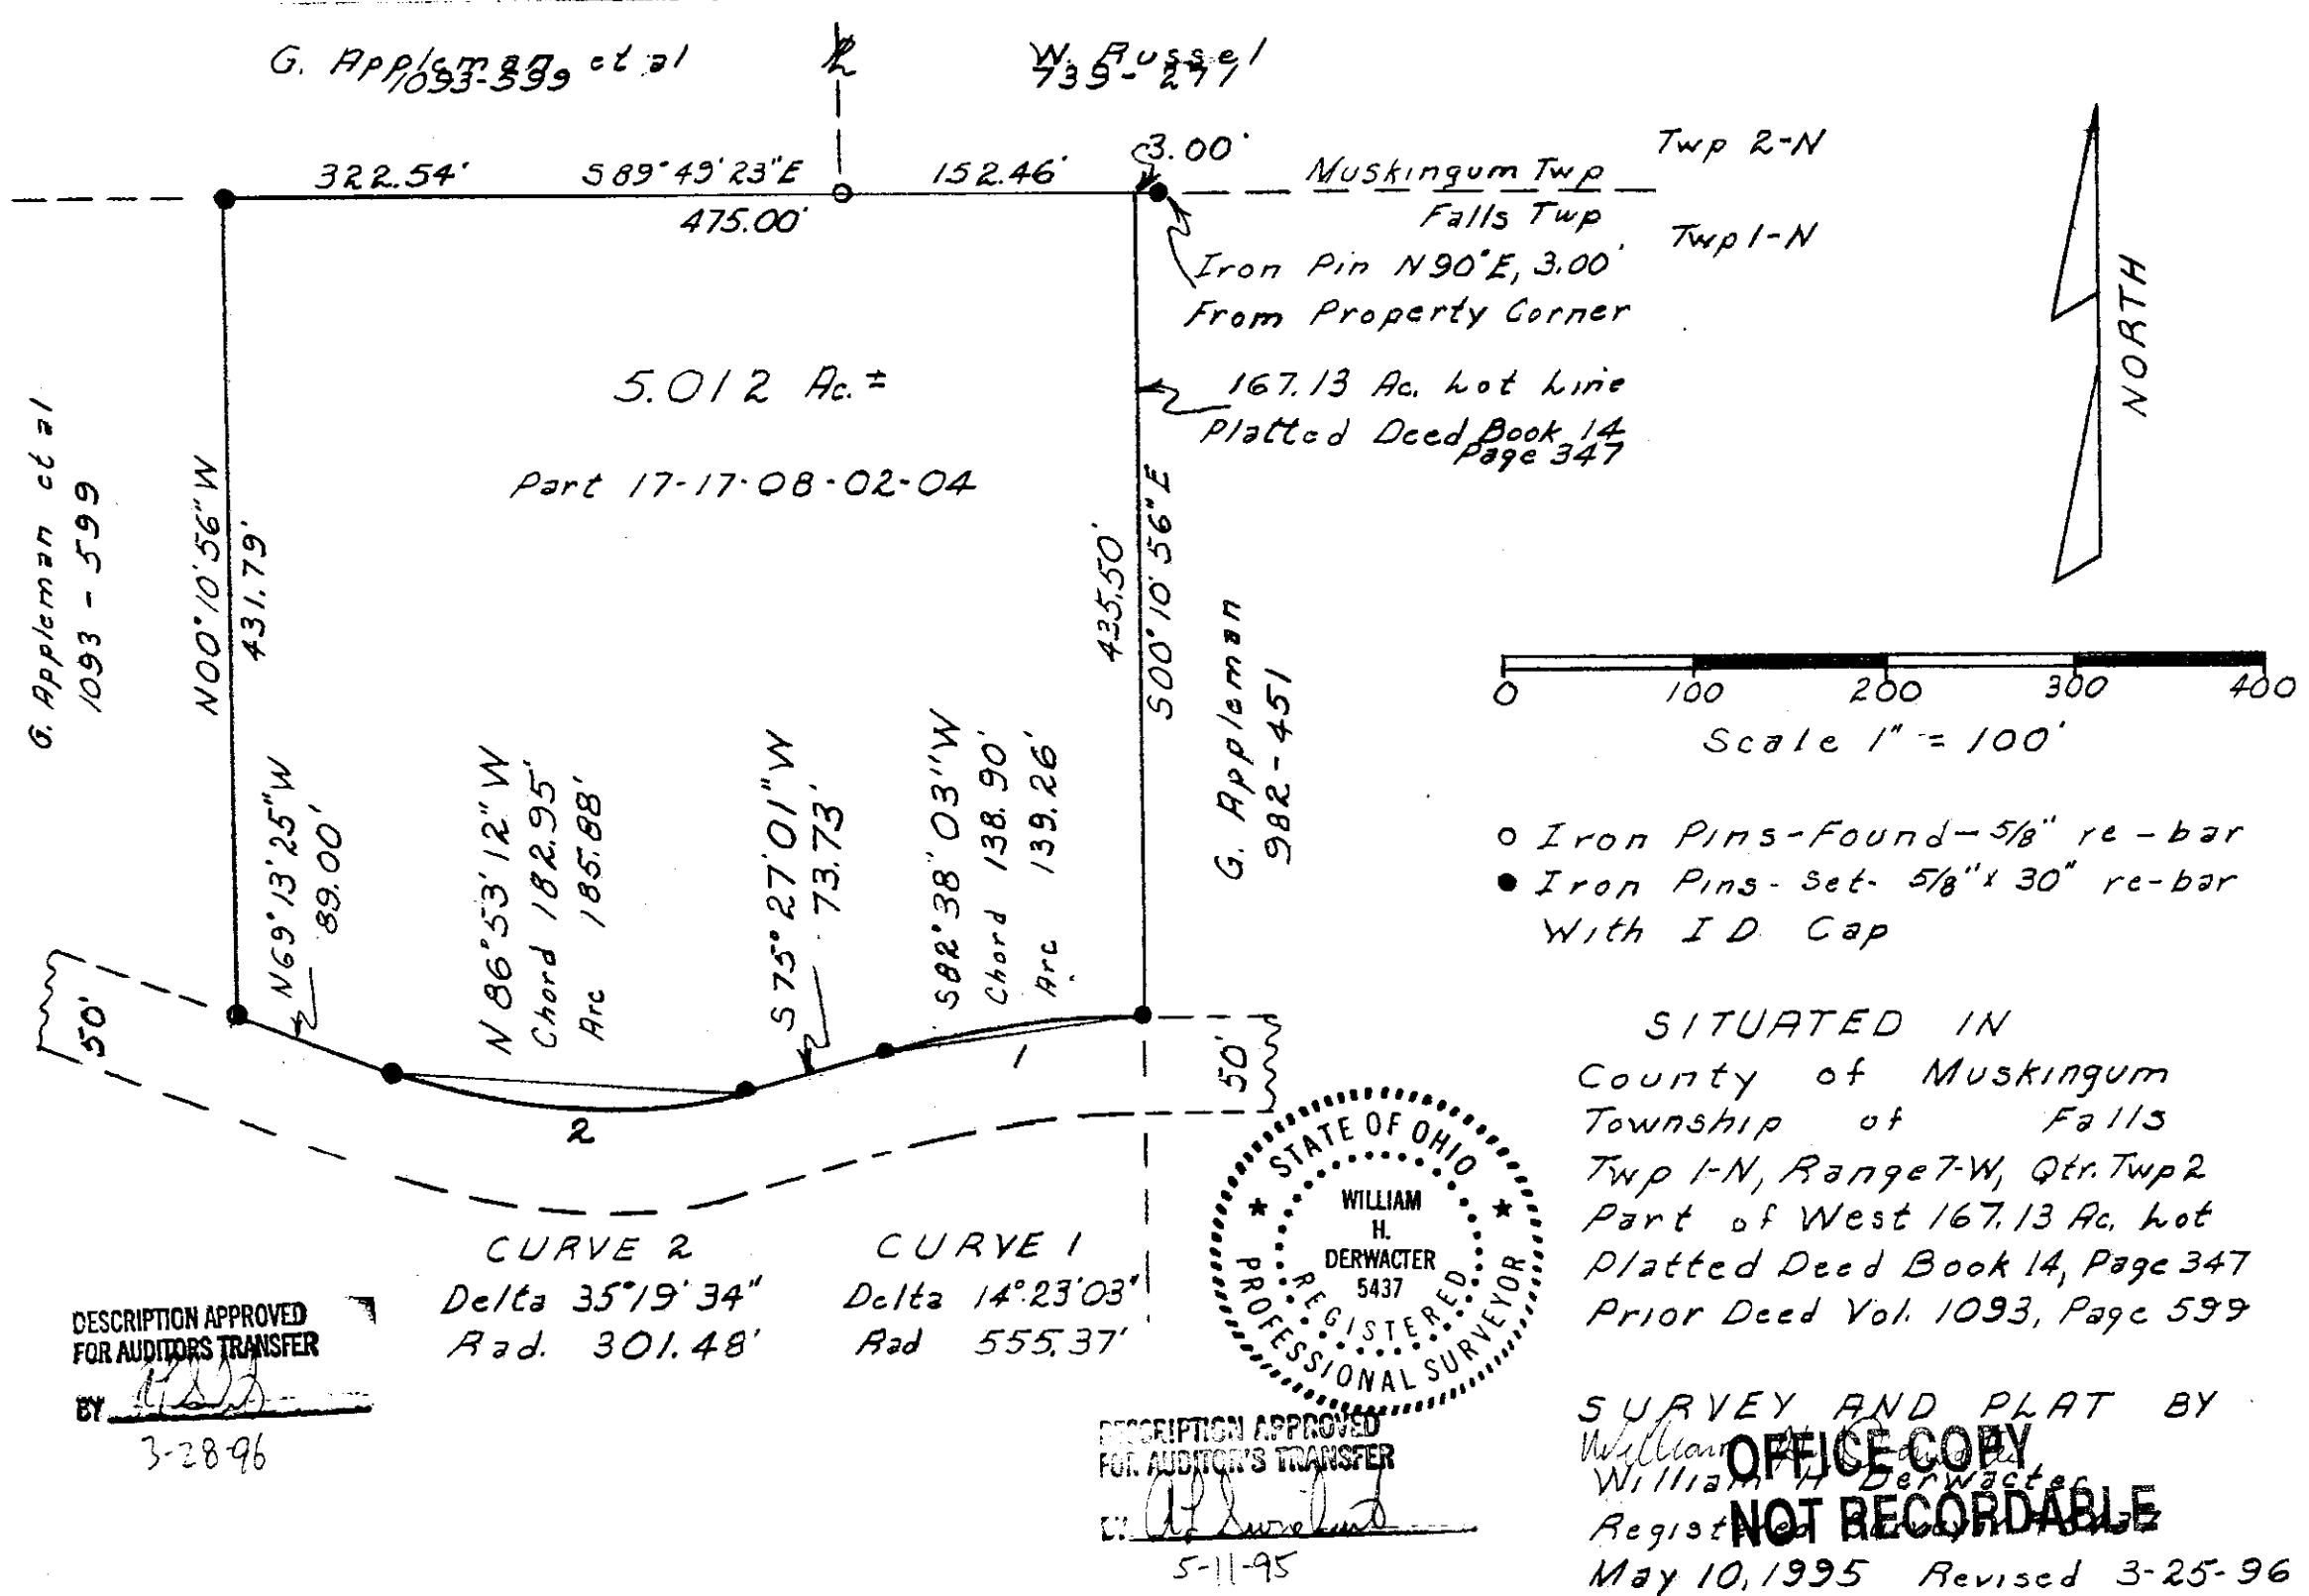 G. Appleman et al
1093-599
PL
W. Russel
739-271
322.54'
S89°49'23"E
152.46'
3.00'
475.00'
Muskingum Twp
Twp 2-N
Falls Twp
Twp 1-N
Iron Pin N90°E, 3.00'
From Property Corner
NORTH
5.012 Ac. ±
167.13 Ac. Lot Line
Platted Deed Book 14
Page 347
Part 17-17-08-02-04
G. Appleman et al
1093-599
N00°10'56"W
431.79'
435.50'
S00°10'56"E
G. Appleman
982-451
0 100 200 300 400
Scale 1" = 100'
N69°13'25"W
89.00'
N 86°53'12"W
Chord 182.95'
Arc 185.88'
S75°27'01"W
73.73'
S82°38'03"W
Chord 138.90'
Arc 139.26'
o Iron Pins-Found-5/8" re-bar
● Iron Pins-Set- 5/8" x 30" re-bar
With I D Cap
50'
50'
1
2
SITUATED IN
County of Muskingum
Township of Falls
Twp 1-N, Range 7-W, Qtr. Twp 2
Part of West 167.13 Ac. Lot
Platted Deed Book 14, Page 347
Prior Deed Vol. 1093, Page 599
CURVE 2
Delta 35°19'34"
Rad. 301.48'
CURVE 1
Delta 14°23'03"
Rad 555.37'
STATE OF OHIO
WILLIAM
H.
DERWACTER
5437
REGISTERED
PROFESSIONAL SURVEYOR
DESCRIPTION APPROVED
FOR AUDITORS TRANSFER
BY
3-28-96
DESCRIPTION APPROVED
FOR AUDITOR'S TRANSFER
BY
5-11-95
SURVEY AND PLAT BY
William H Derwacter
OFFICE COPY
NOT RECORDABLE
May 10, 1995 Revised 3-25-96